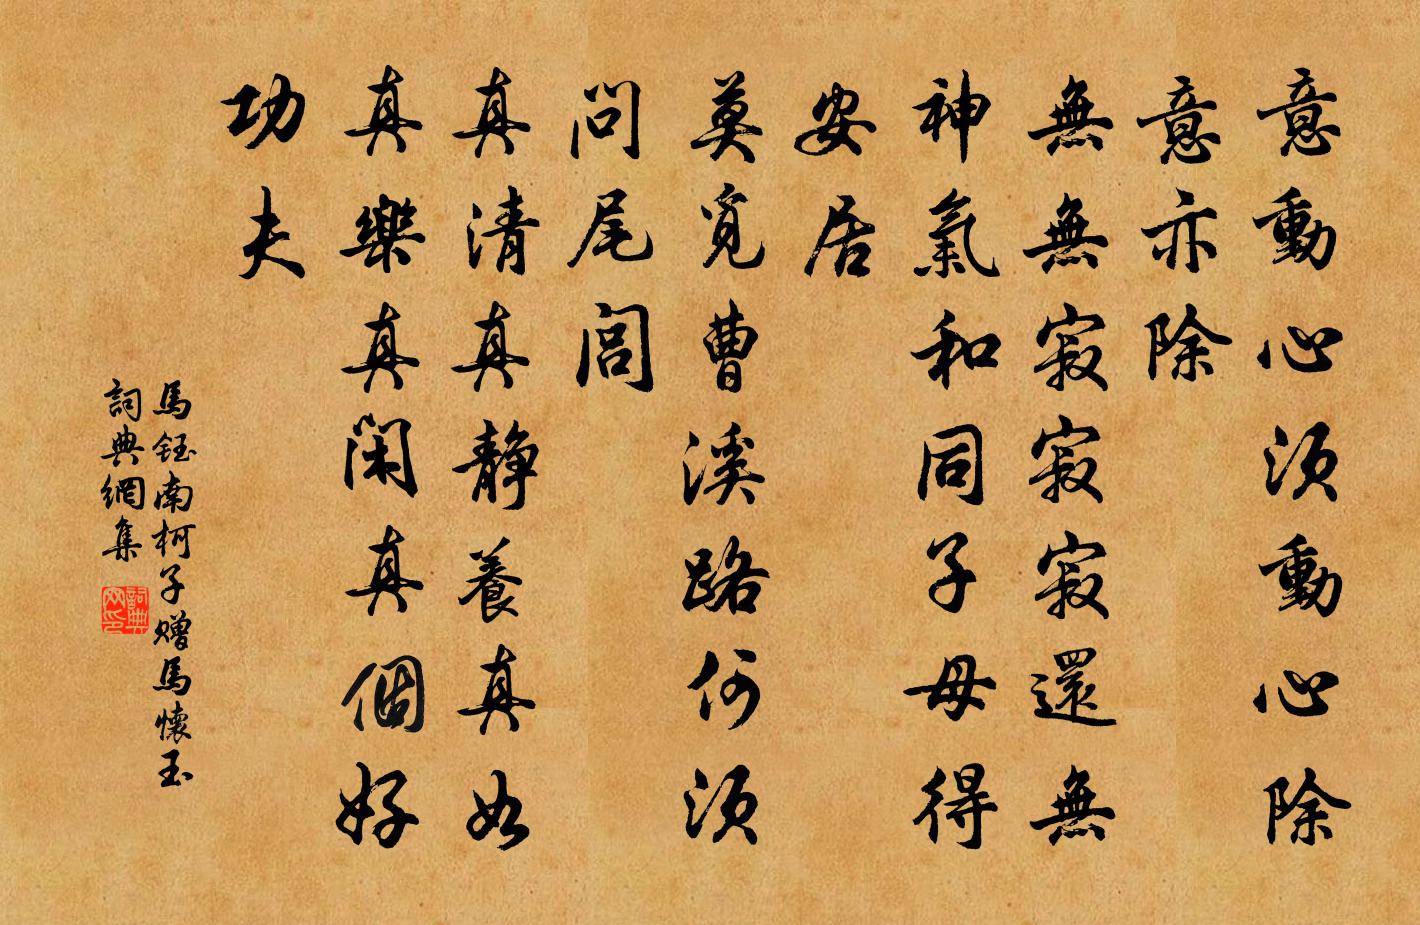 意動心須動心除
意亦除
無無寂寂寂還無
神氣和同子母得
安居
莫覓曹溪路何須
問尾閭
真清真静養真如
真樂真閑真個好
功夫
馬鈺南柯子贈馬懷玉
詞典網集
詞典网印